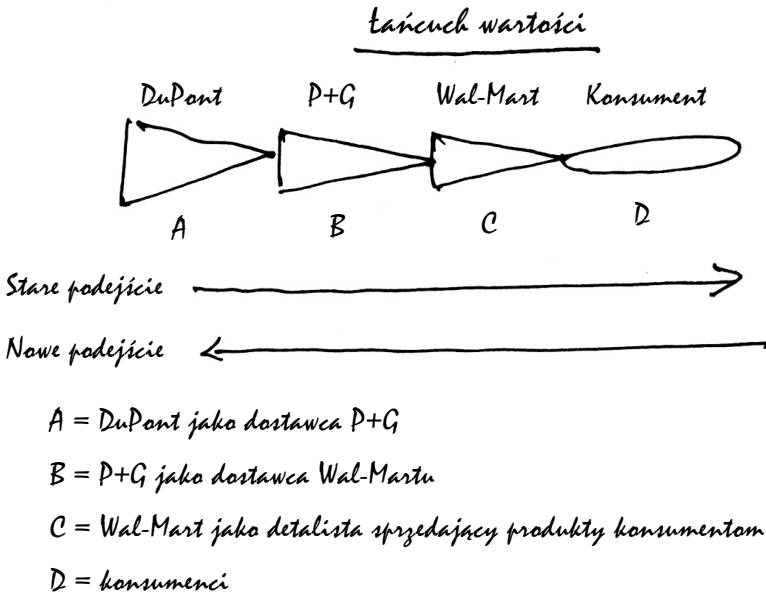 Łańcuch wartości
DuPont P+G Wal-Mart Konsument
A B C D
Stare podejście
Nowe podejście
A = DuPont jako dostawca P+G
B = P+G jako dostawca Wal-Martu
C = Wal-Mart jako detalista sprzedający produkty konsumentom
D = konsumenci